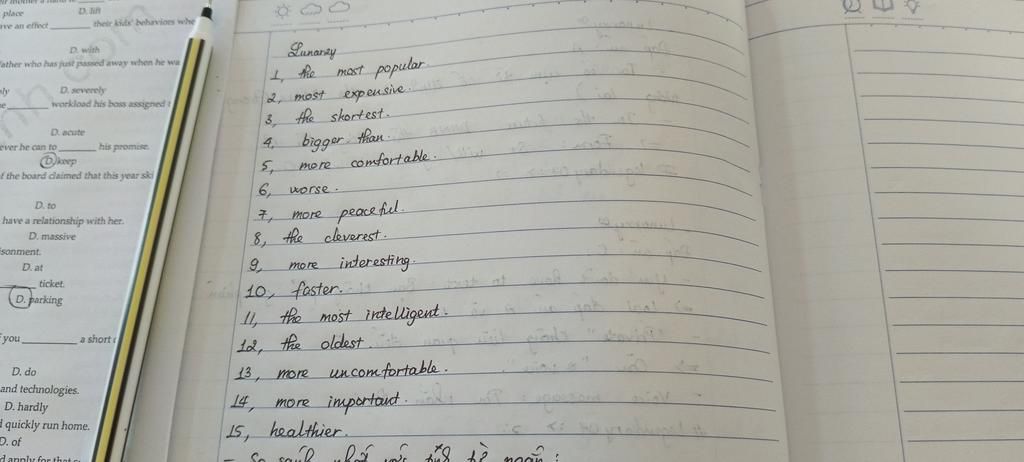 place D. lift
ave an effect ______ their kids' behaviors whe
D. with
father who has just passed away when he wa
D. severely
______ workload his boss assigned t
D. acute
ever he can to ______ his promise.
D. keep
f the board claimed that this year ski
D. to
have a relationship with her.
D. massive
sonment.
D. at
______ ticket.
D. parking
you ______ a short
D. do
and technologies.
D. hardly
quickly run home.
D. of
Lunarzy
1, the most popular
2, most expensive.
3, the shortest.
4, bigger than.
5, more comfortable.
6, worse.
7, more peaceful.
8, the cleverest.
9, more interesting.
10, faster.
11, the most intelligent.
12, the oldest.
13, more uncomfortable.
14, more important.
15, healthier.
- So sánh nhất với tính từ ngắn: